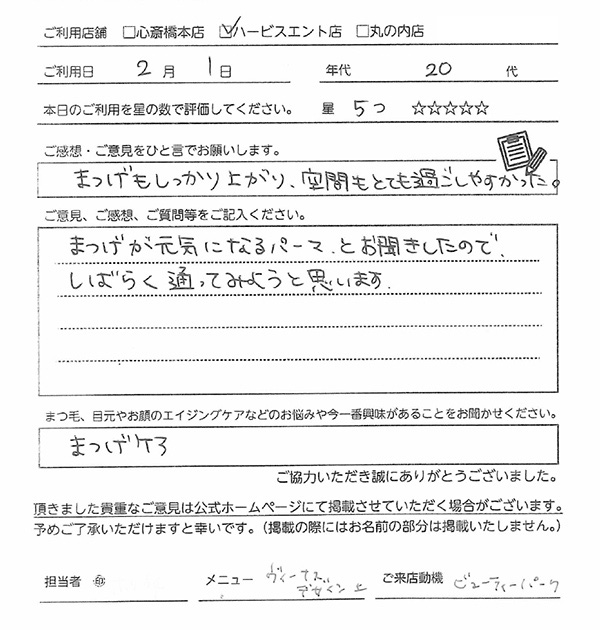 ご利用店舗 □心斎橋本店 ☑ハービスエント店 □丸の内店
ご利用日 2月 1日 年代 20代
本日のご利用を星の数で評価してください。 星 5つ ☆☆☆☆☆
ご感想・ご意見をひと言でお願いします。
まつげもしっかり上がり、空間もとても過ごしやすかった。
ご意見、ご感想、ご質問等をご記入ください。
まつげが元気になるパーマ、とお聞きしたので、
しばらく通ってみようと思います。
まつ毛、目元やお顔のエイジングケアなどのお悩みや今一番興味があることをお聞かせください。
まつげケア
ご協力いただき誠にありがとうございました。
頂きました貴重なご意見は公式ホームページにて掲載させていただく場合がございます。
予めご了承いただけますと幸いです。（掲載の際にはお名前の部分は掲載いたしません。）
担当者 メニュー ヴィーナスデザイン上 ご来店動機 ビューティーパーク